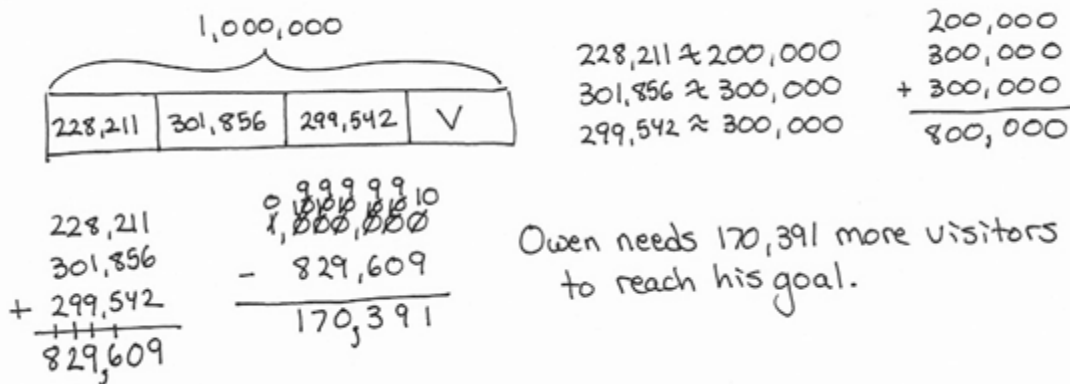 1,000,000
228,211 301,856 299,542 V
228,211 ≈ 200,000
301,856 ≈ 300,000
299,542 ≈ 300,000
200,000
300,000
+ 300,000
800,000
228,211
301,856
+ 299,542
829,609
0 9 9 9 9 9 10
10 10 10 10
1,000,000
- 829,609
170,391
Owen needs 170,391 more visitors
to reach his goal.